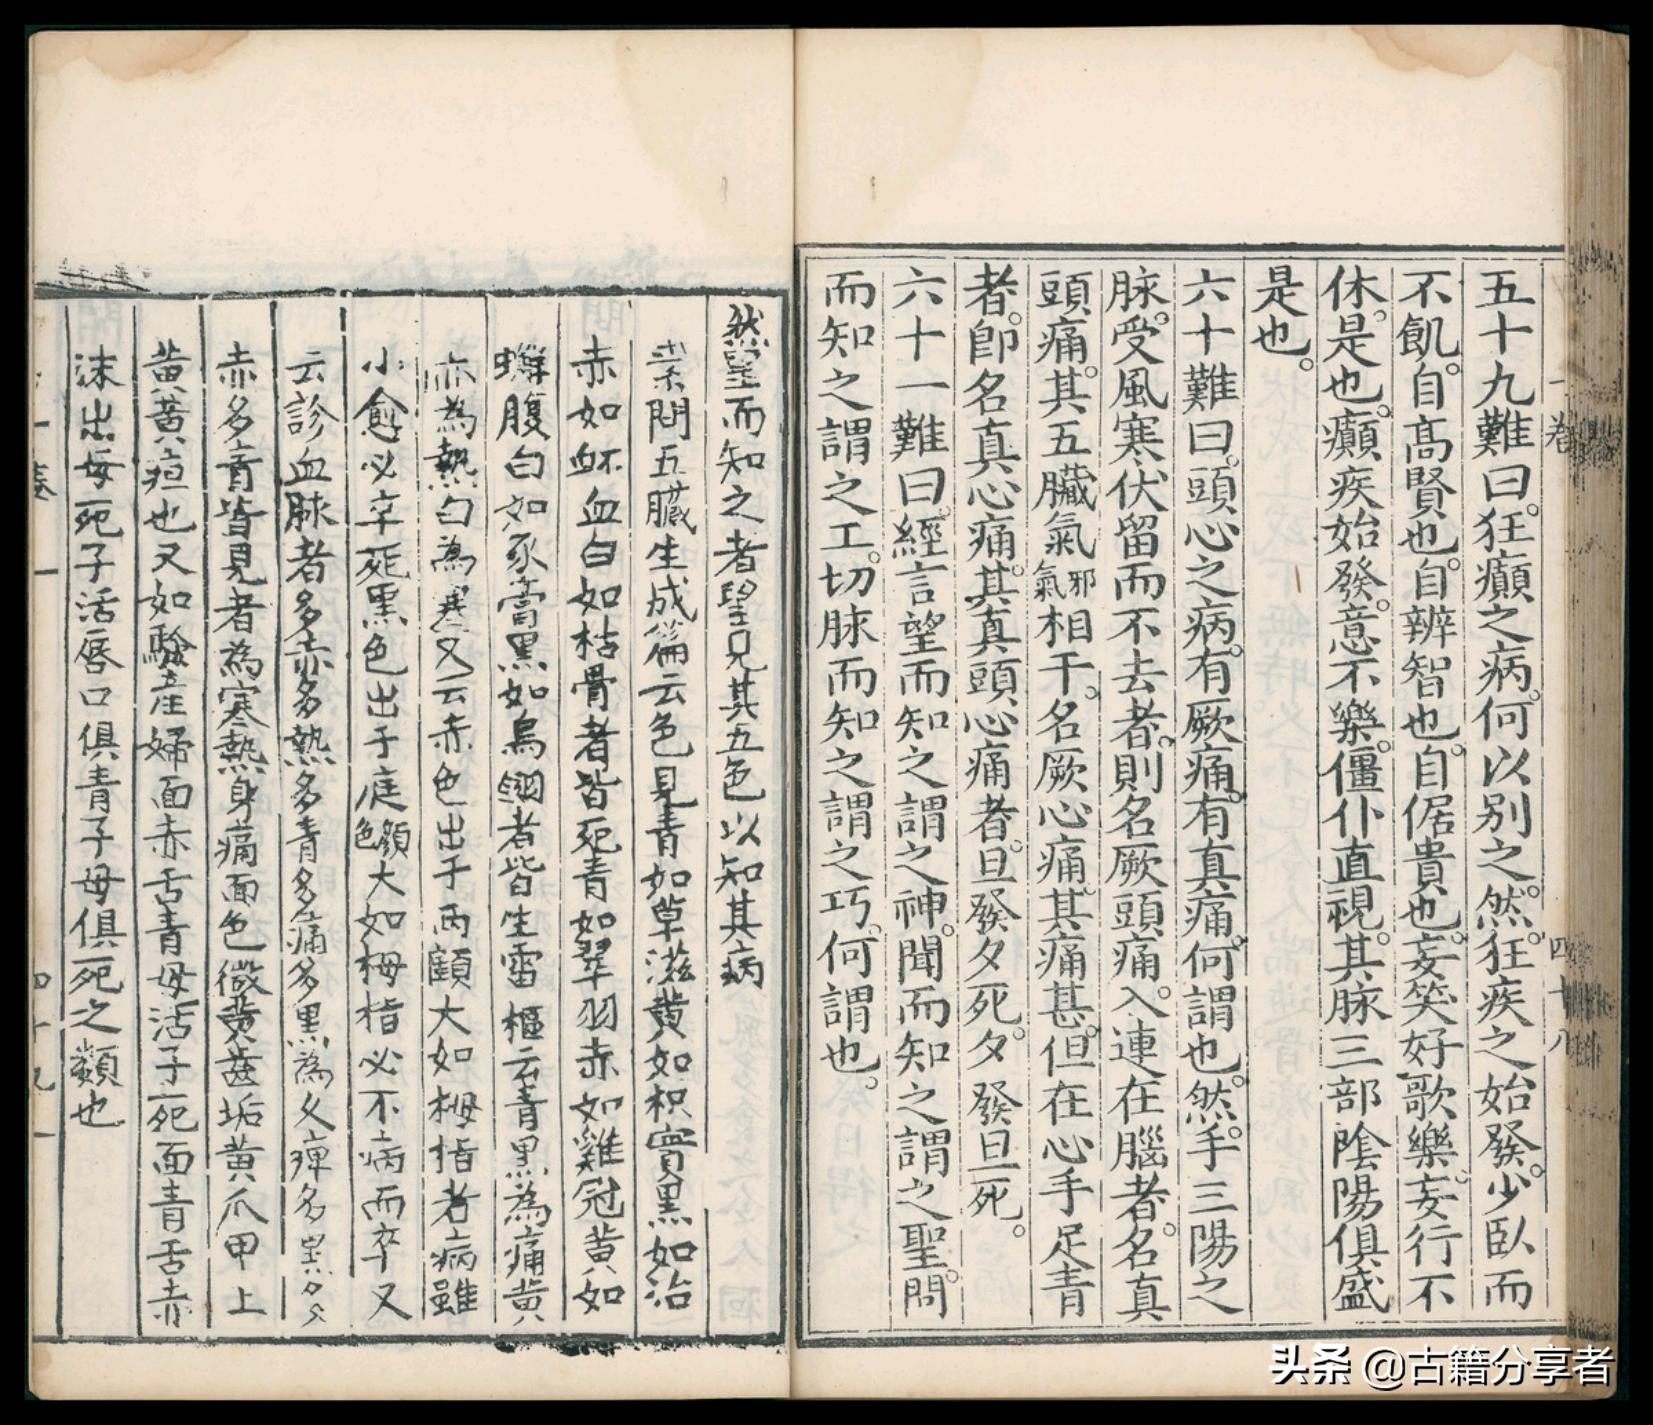 五十九難曰。狂癲之病。何以别之。然。狂疾之始發。少臥而
不飢。自高賢也。自辨智也。自倨貴也。妄笑好歌樂。妄行不
休。是也。癲疾始發。意不樂。僵仆直視。其脉三部陰陽俱盛
是也。
六十難曰。頭心之病。有厥痛。有真痛。何謂也。然。手三陽之
脉。受風寒。伏留而不去者。則名厥頭痛。入連在腦者。名真
頭痛。其五臟氣邪氣相干。名厥心痛。其痛甚。但在心手足青
者。卽名真心痛。其真頭心痛者。旦發夕死。夕發旦死。
六十一難曰。經言望而知之謂之神。聞而知之謂之聖。問
而知之謂之工。切脉而知之謂之巧。何謂也。
然望而知之者望見其五色以知其病
素問五臓生成篇云色見青如草滋黄如枳實黒如治
赤如血衃血白如枯骨者皆死青如翠羽赤如雞冠黄如
蟬腹白如豕膏黒如烏翎者皆生雷樞云青黒為痛黄
赤為熱白為寒又云赤色出于両顴大如栂指者病雖
小愈必卒死黒色出于庭顔色大如栂指必不病而卒又
云診血脉者多赤多熱多青多痛多黒為久痺多黒多
赤多青皆見者為寒熱身痛面色微黄齒垢黄爪甲上
黄黄疸也又如驗産婦面赤舌青母活子死面青舌赤
沫出母死子活唇口俱青子母俱死之類也
一卷
四十八
四十九
头条 @古籍分享者